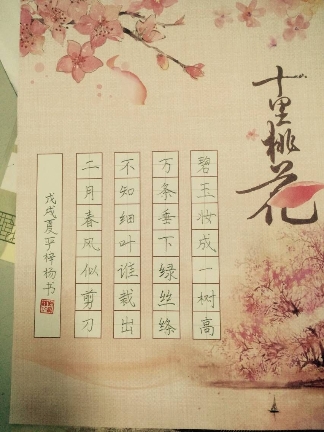 十里桃花
碧玉妆成一树高
万条垂下绿丝绦
不知细叶谁裁出
二月春风似剪刀
戊戌夏于梓杨书